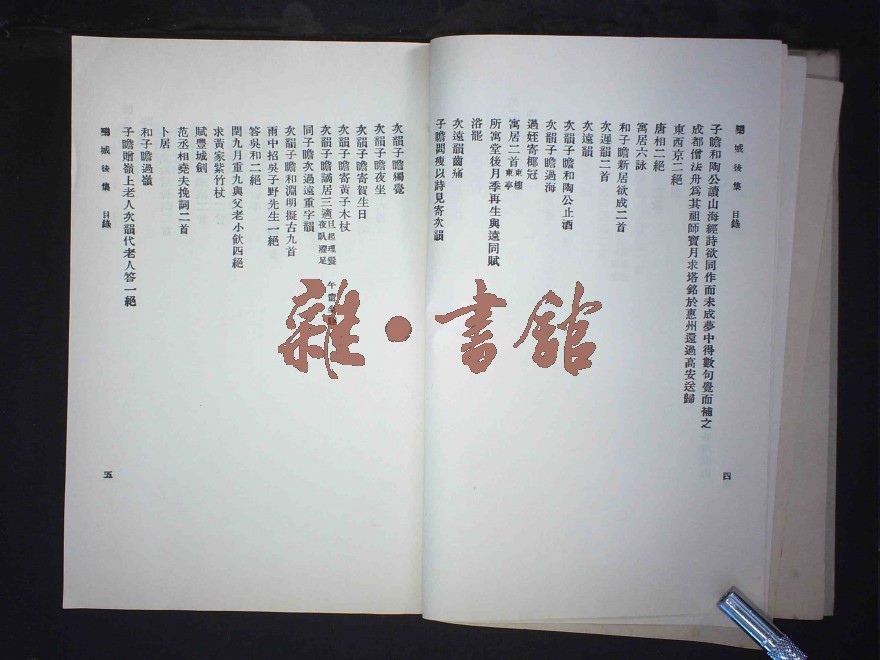 欒城後集 目錄
子瞻和陶公讀山海經詩欲同作而未成夢中得數句覺而補之
成都僧法舟爲其祖師寶月求塔銘於惠州還過高安送歸
東西京二絕
唐相二絕
寓居六詠
和子瞻新居欲成二首
次遲韻二首
次遠韻
次韻子瞻和陶公止酒
次韻子瞻過海
過姪寄椰冠
寓居二首 東樓 東亭
所寓堂後月季再生與遠同賦
浴罷
次遠韻齒痛
子瞻聞瘦以詩見寄次韻
四
次韻子瞻獨覺
次韻子瞻夜坐
次韻子瞻寄賀生日
次韻子瞻寄黃子木杖
次韻子瞻謫居三適 旦起理髮 午窗 夜臥濯足
同子瞻次過遠重字韻
次韻子瞻和淵明擬古九首
雨中招吳子野先生一絕
答吳和二絕
閏九月重九與父老小飲四絕
求黃家紫竹杖
賦豐城劍
范丞相堯夫挽詞二首
卜居
和子瞻過嶺
子瞻贈嶺上老人次韻代老人答一絕
欒城後集 目錄
五
雜·書館